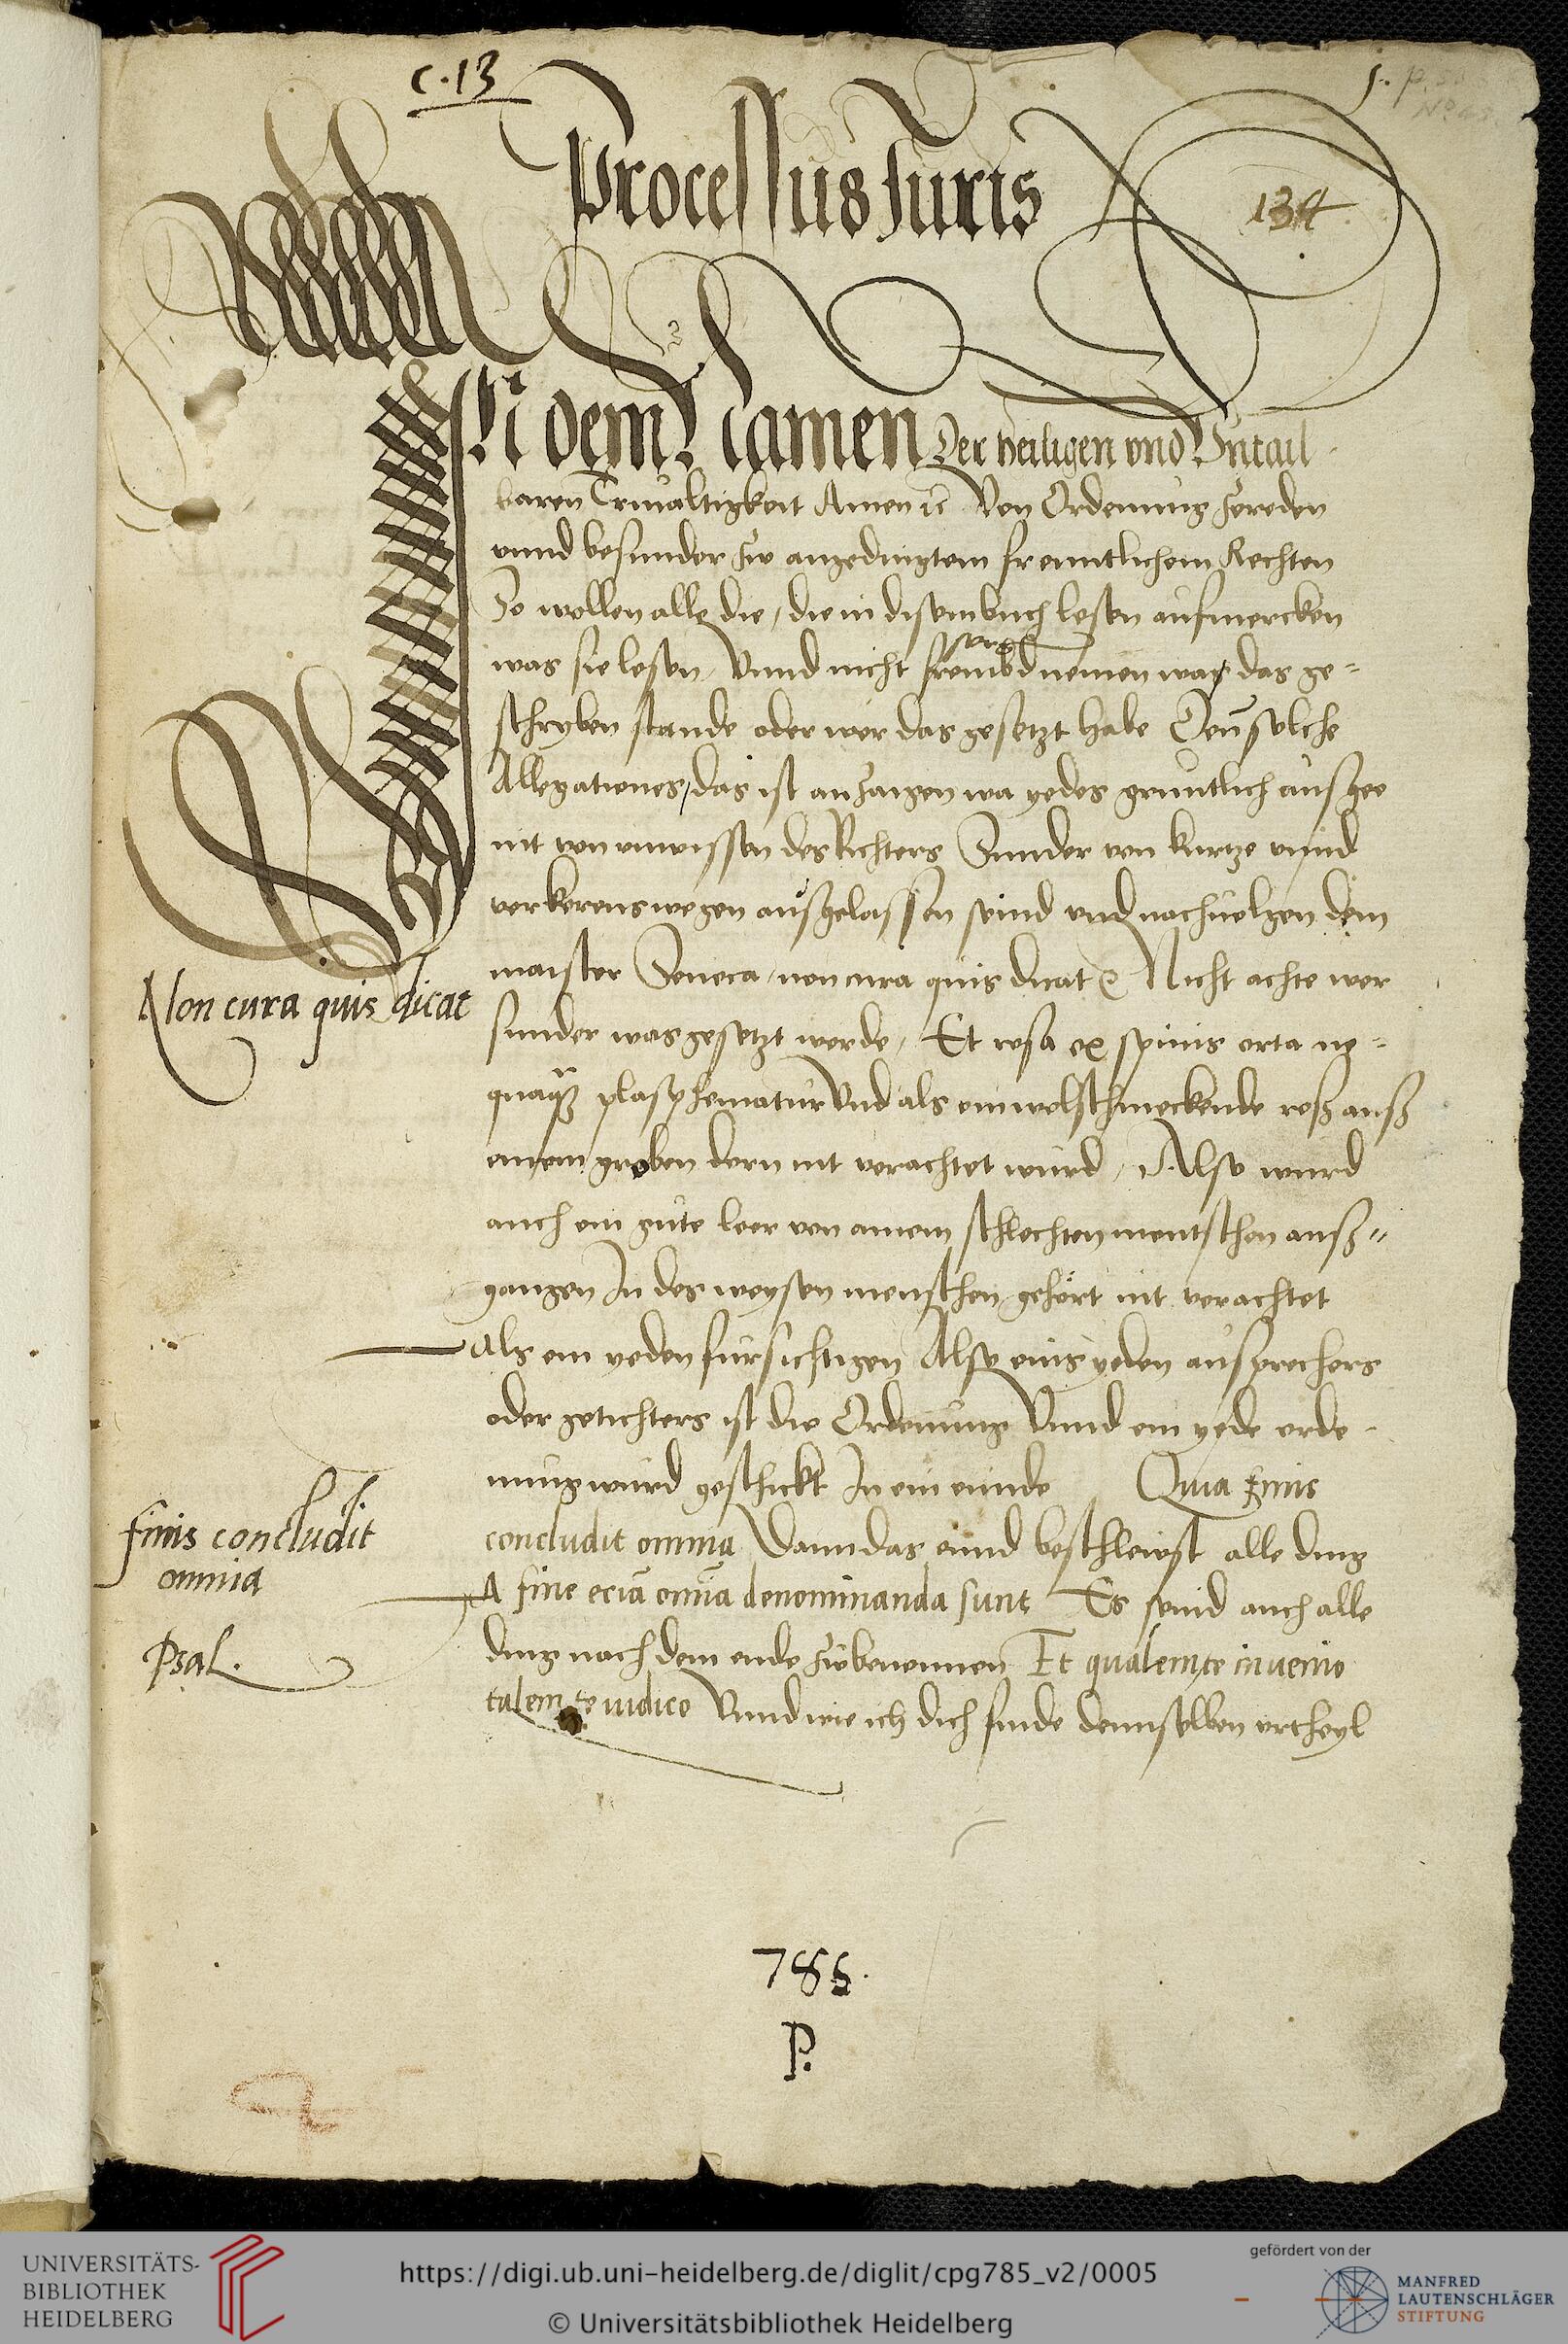 C. 13
1.
Processus Juris
134
In dem Namen Der heiligen vnd Vntail
baren Triualtigkeit Amen Von Ordenung zereden
vnnd besunder zw angedingtem freuntlichem Rechten
So wollen alle die, die in disem buch lesen aufmercken
was sie lesen, Vnnd nicht frembd nemen was das ge-
schryben stande oder wer das gesetzt habe Den solche
Allegationes, das ist anzaigen wa yedes gruntlich ausgee
nit von vnwissen des Richters Sunder von kurtze vnnd
verkerens wegen außgelassen seind vnd nachuolgen dem
maister Seneca, non cura quis dicat Nicht achte wer
Non cura quis dicat
sunder was gesetzt werde, Et rosa ex spinis orta ne-
quaq̃ plasphematur Vnd als ein wolschmeckende roß auß
einem groben dorn nit verachtet wurd, Also wurd
auch ein gute leer von ainem schlechten mentschen auß-
gangen In des weysen menschen gehört nit verachtet
Als ein yeden fursichtigen Also eins yeden aussprechers
oder getichters ist die Ordenung Vnnd ein yede orde-
nung wurd geschickt In ein ennde Quia Finis
finis concludit
omnia
concludit omnia Dann das ennd beschleust alle ding
A fine eciā omnia denominanda sunt Es seind auch alle
Psal.
ding nach dem ende zubenennen Et qualem te inuenio
talem te iudico Vnnd wie ich dich finde dennselben vrtheyl
785.
P.
UNIVERSITÄTS-
BIBLIOTHEK
HEIDELBERG
https://digi.ub.uni-heidelberg.de/diglit/cpg785_v2/0005
© Universitätsbibliothek Heidelberg
gefördert von der
MANFRED
LAUTENSCHLÄGER
STIFTUNG